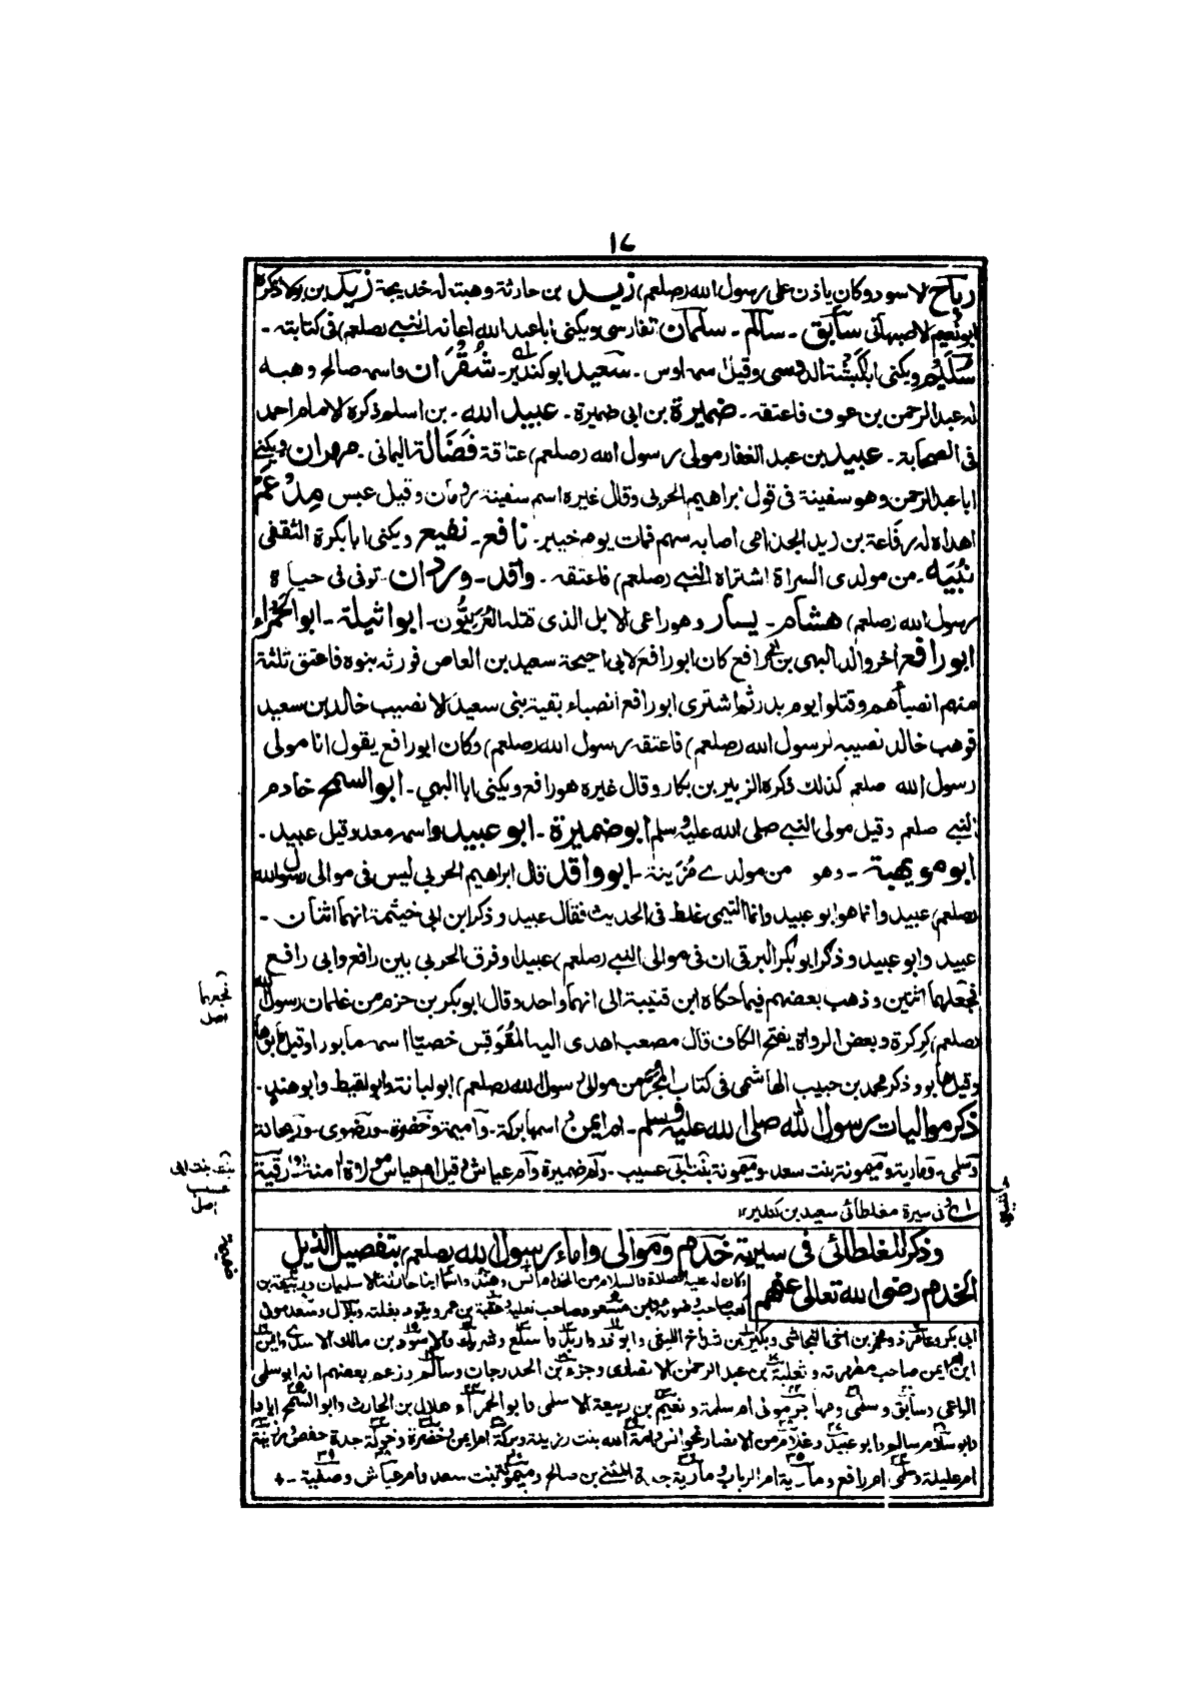 ١٧
رباح لاسود وكان ياذن على رسول الله (صلعم) زيد بن حارثة وهبته له خديجة زيد بن بولا ذكره
ابو نعيم الاصبهانى سابق - سالم - سلمان الفارسى ويكنى ابا عبد الله اعانه النبى (صلعم) فى كتابته -
سليم ويكنى ابا كبشة الدوسى وقيل اسمه اوس - سعيد ابو كندير - شقران واسمه صالح وهبه
له عبد الرحمن بن عوف فاعتقه - ضميرة بن ابى ضميرة - عبيد الله - بن اسلم ذكره الامام احمد
فى الصحابة - عبيد بن عبد الغفار مولى رسول الله (صلعم) عتاقة فضالة اليمانى - مهران ويكنى
ابا عبد الرحمن وهو سفينة فى قول ابراهيم الحربى وقال غيره اسم سفينة رومان وقيل عبس مدعم
اهداه له رفاعة بن زيد الجذامى اصابه سهم فمات يوم خيبر - نافع - نفيع ويكنى ابا بكرة الثقفى
نبيه - من مولدى السراة اشتراه النبى (صلعم) فاعتقه - واقد - وردان - توفى فى حياة
رسول الله (صلعم) هشام - يسار وهو راعى الابل الذى قتله العرنيون - ابو اثيلة - ابو الحمراء
ابو رافع اخر والد البهى بن ابى رافع كان ابو رافع لابى احيحة سعيد بن العاص فورثه بنوه فاعتق ثلثة
منهم انصباءهم وقتلوا يوم بدر ثم اشترى ابو رافع انصباء بقية بنى سعيد لا نصيب خالد بن سعيد
فوهب خالد نصيبه لرسول الله (صلعم) فاعتقه رسول الله (صلعم) وكان ابو رافع يقول انا مولى
رسول الله صلعم كذلك ذكره الزبير بن بكار وقال غيره هو رافع ويكنى ابا البهى - ابو السمح خادم
النبى صلعم وقيل مولى النبى صلى الله عليه وسلم ابو ضميرة - ابو عبيد واسمه سعد وقيل عبيد -
ابو مويهبة - وهو من مولدى مزينة - ابو واقد قال ابراهيم الحربى ليس فى موالى رسول الله
(صلعم) عبيد وانما هو ابو عبيد وانما التيمى غلط فى الحديث فقال عبيد وذكر ابن ابى خيثمة انهما اثنان -
عبيد وابو عبيد وذكر ابو بكر البرقى ان فى موالى النبى (صلعم) عبيدا وفرق الحربى بين رافع وابى رافع
فجعلهما اثنين وذهب بعضهم فيما حكاه ابن قتيبة الى انهما واحد وقال ابو بكر بن حزم من غلمان رسول الله
(صلعم) كركرة وبعض الرواة يفتح الكاف قال مصعب اهدى اليه المقوقس خصيا اسمه مابور اوقيل مابو
وقيل هابو وذكر محمد بن حبيب الهاشمى فى كتاب المحبر من موالى رسول الله (صلعم) ابو لبانة وابو لقيط وابو هند -
ذكر موليات رسول الله صلى الله عليه وسلم - ام ايمن اسمها بركة - واميمة وخضرة - ورضوى - وريحانة
وسلمى - ومارية وميمونة بنت سعد وميمونة بنت ابى عسيب - وام ضميرة وام عياش وقيل ام عباس امنة رقية
فجعلهما
اصل
بنت ابى
عسيب
اصل
١ فى سيرة مغلطائى سعيد بن كندير ١٢
وذكر المغلطائى فى سيرته خدم وموالى واماء رسول الله (صلعم) بتفصيل الذيل
الخدم رضى الله تعالى عنهم
وكان له عليه الصلاة والسلام من الخدام انس وهند واسما ابنا حارثة الاسلميان وربيعة بن
كعب صاحب وضوئه وابن مسعود صاحب نعليه وعقبة بن عمرو يقود بغلته وبلال وسعد مولى
ابى بكر وذو مخمر بن اخى النجاشى وبكير بن شداخ الليثى وابو ذر واربد واسلع وشريك والاسود بن مالك الاسدى وايمن
ابن ام ايمن صاحب مطهرته وثعلبة بن عبد الرحمن الانصارى وجزء بن الحدرجان وسالم وزعم بعضهم انه ابو سلمى
الراعى وسابق وسلمى ومهاجر مولى ام سلمة ونعيم بن ربيعة الاسلمى وابو الحمراء هلال بن الحارث وابو السمح اياد
وابو سلام سالم وابو عبيد وغلام من الانصار نحو انس وامة الله بنت رزينة وبركة ام ايمن وخضرة وخولة جدة حفص ورزينة
ام عليلة وسلمى ام رافع ومارية ام الرباب ومارية جدة المثنى بن صالح وميمونة بنت سعد وام عياش وصفية -